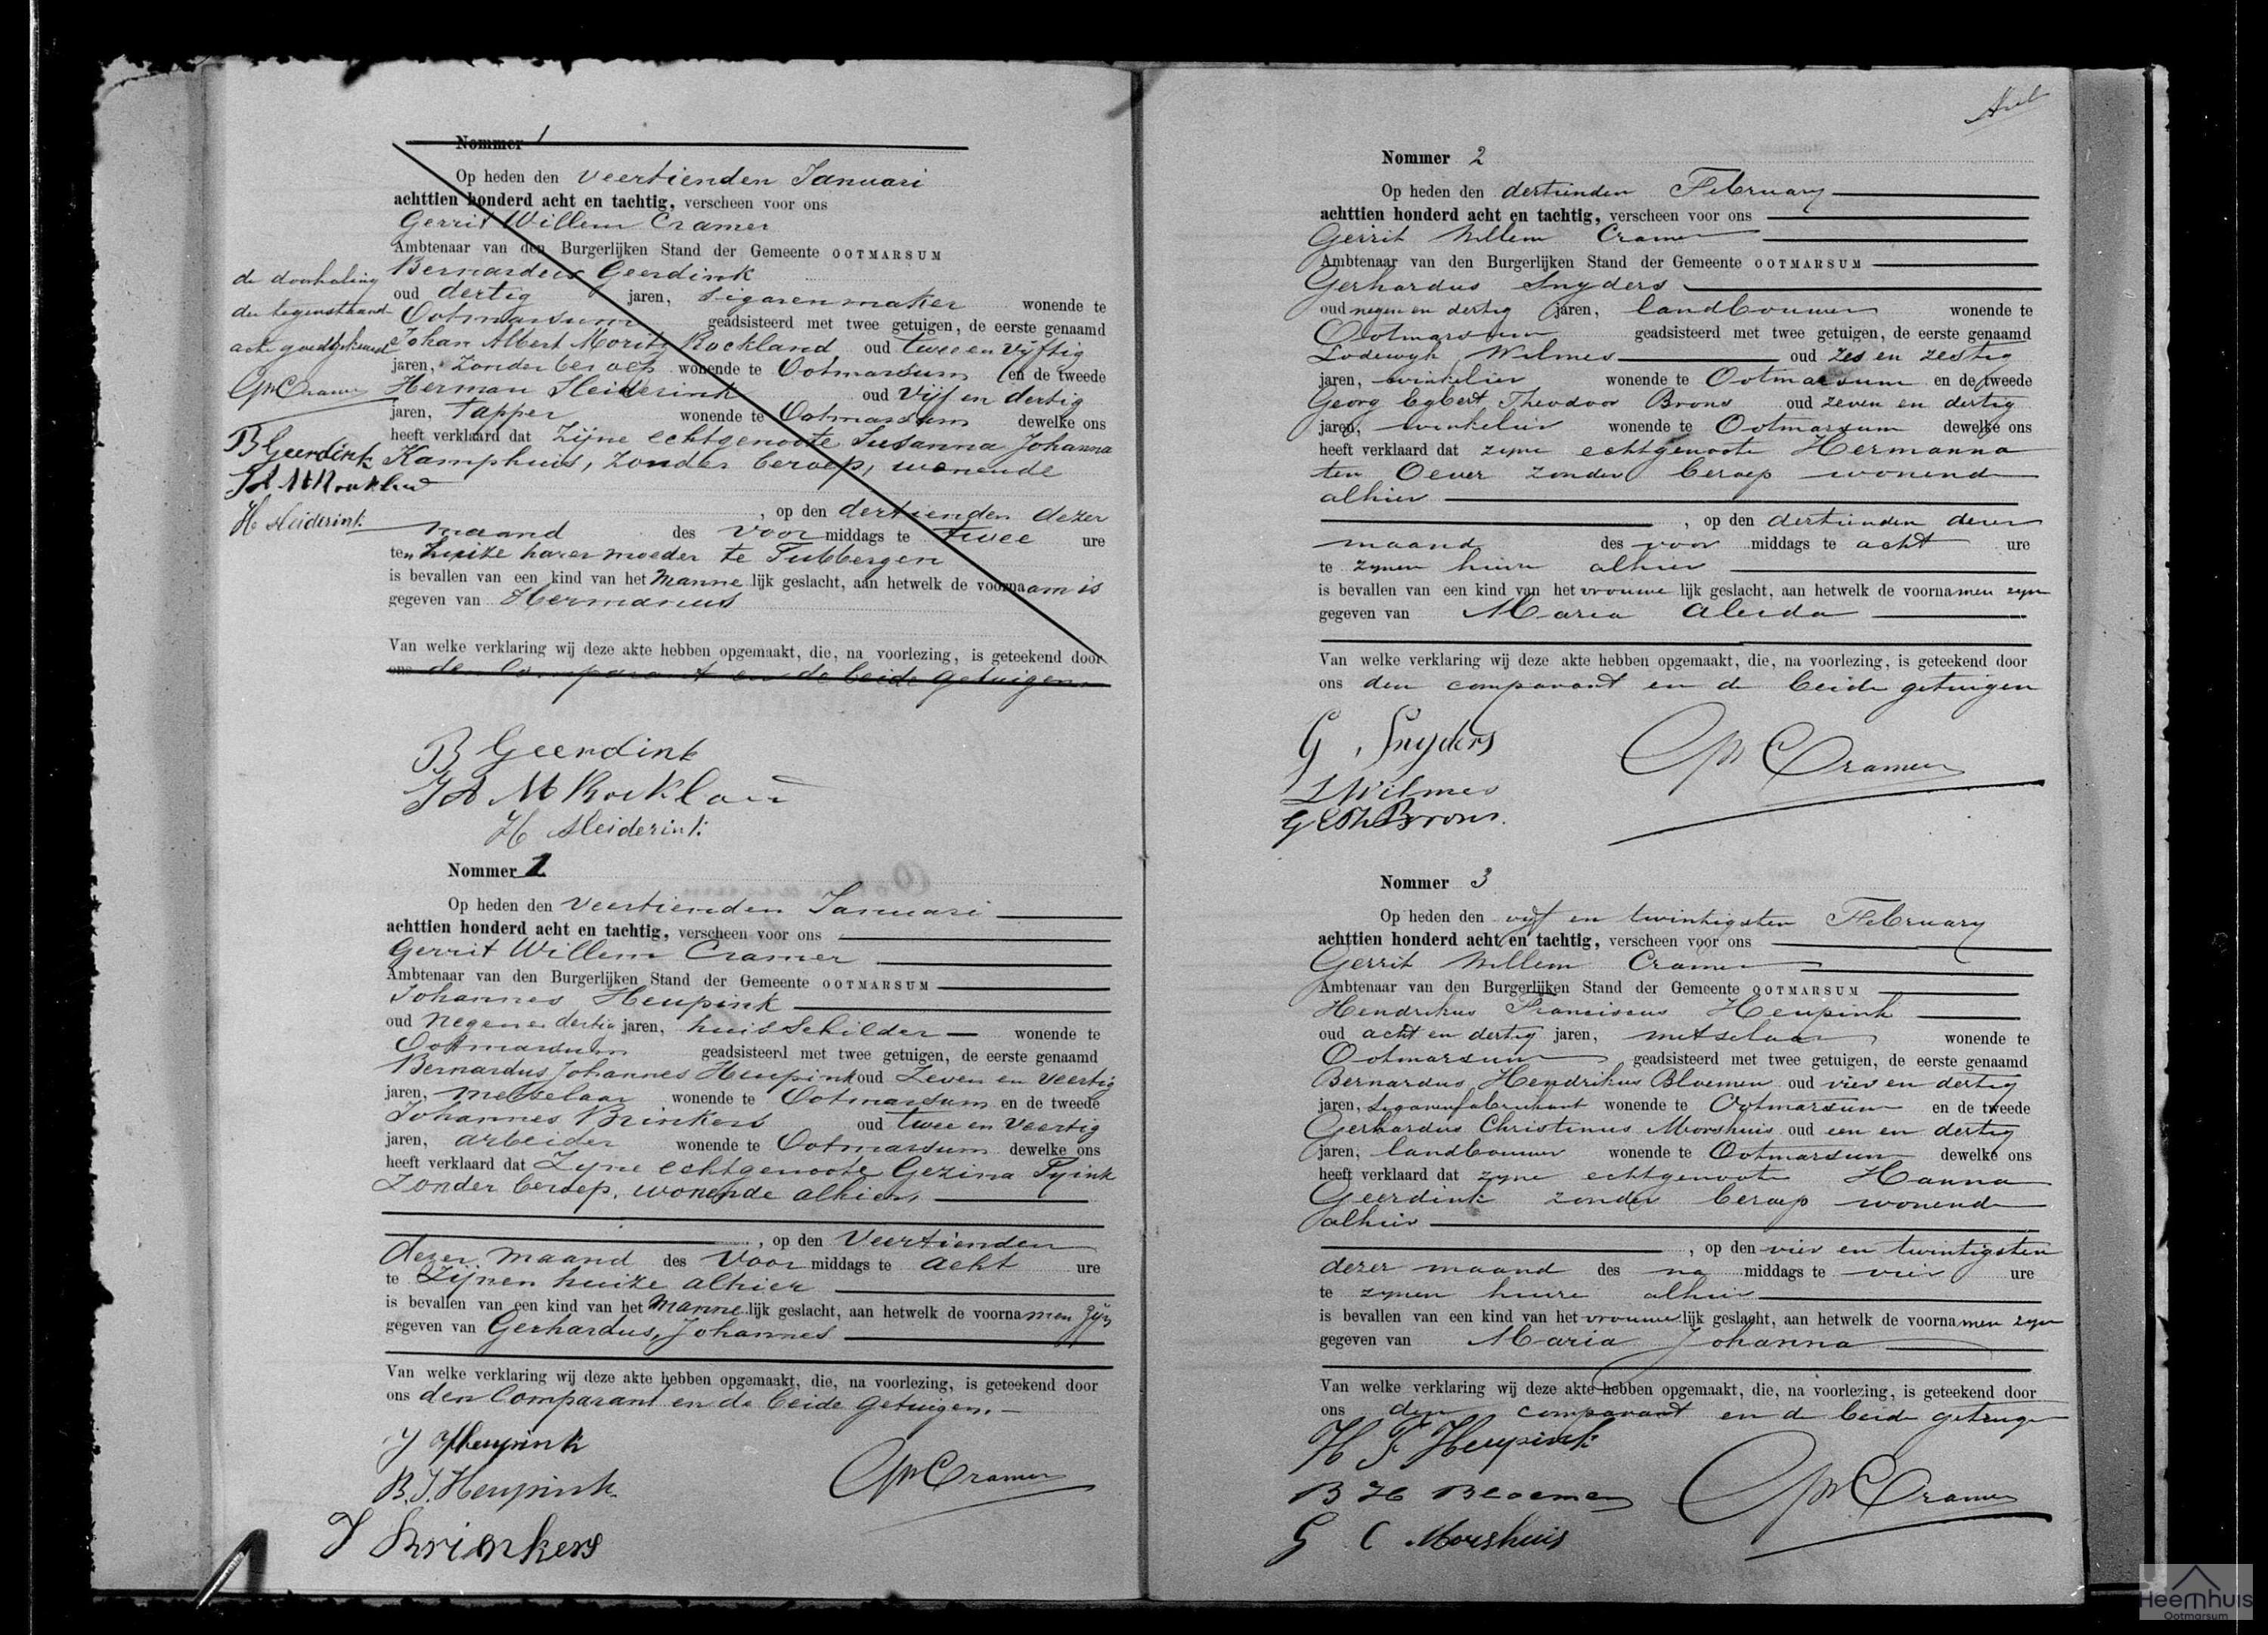 Nommer 1
Op heden den veertienden Januari
achttien honderd acht en tachtig, verscheen voor ons
Gerrit Willem Cramer
Ambtenaar van den Burgerlijken Stand der Gemeente OOTMARSUM
Bernardus Geerdink
oud dertig jaren, sigarenmaker wonende te
Ootmarsum geadsisteerd met twee getuigen, de eerste genaamd
Johan Albert Moritz Rockland oud twee en vijftig
jaren, zonder beroep wonende te Ootmarsum en de tweede
Herman Sleiderink oud vijf en dertig
jaren, tapper wonende te Ootmarsum dewelke ons
heeft verklaard dat zijne echtgenoote Susanna Johanna
Kamphuis, zonder beroep, wonende
, op den dertienden dezer
maand des voor middags te twee ure
ten huize harer moeder te Tubbergen
is bevallen van een kind van het manne lijk geslacht, aan hetwelk de voornaam is
gegeven van Hermanus
Van welke verklaring wij deze akte hebben opgemaakt, die, na voorlezing, is geteekend door
ons den Comparant en de beide getuigen
de doorhaling
der tegenstaande
acte goedgekeurd
GWCramer
B Geerdink
J A M Rockland
H Sleiderink
B Geerdink
J A M Rockland
H Sleiderink
Nommer 1
Op heden den veertienden Januari
achttien honderd acht en tachtig, verscheen voor ons
Gerrit Willem Cramer
Ambtenaar van den Burgerlijken Stand der Gemeente OOTMARSUM
Johannes Heupink
oud negen en dertig jaren, huisschilder wonende te
Ootmarsum geadsisteerd met twee getuigen, de eerste genaamd
Bernardus Johannes Heupink oud zeven en veertig
jaren, metselaar wonende te Ootmarsum en de tweede
Johannes Brinkers oud twee en veertig
jaren, arbeider wonende te Ootmarsum dewelke ons
heeft verklaard dat zijne echtgenoote Gezina Tyink
zonder beroep, wonende alhier,
, op den veertienden
dezer maand des voor middags te acht ure
te zijnen huize alhier
is bevallen van een kind van het manne lijk geslacht, aan hetwelk de voornamen zijn
gegeven van Gerhardus, Johannes
Van welke verklaring wij deze akte hebben opgemaakt, die, na voorlezing, is geteekend door
ons den Comparant en de beide getuigen.
J Heupink
B. J. Heupink
GWCramer
J Brinkers
Nommer 2
Op heden den dertienden February
achttien honderd acht en tachtig, verscheen voor ons
Gerrit Willem Cramer
Ambtenaar van den Burgerlijken Stand der Gemeente OOTMARSUM
Gerhardus Snyders
oud negen en dertig jaren, landbouwer wonende te
Ootmarsum geadsisteerd met twee getuigen, de eerste genaamd
Lodewyk Wilmes oud zes en zestig
jaren, winkelier wonende te Ootmarsum en de tweede
Georg Egbert Theodoor Brons oud zeven en dertig
jaren, winkelier wonende te Ootmarsum dewelke ons
heeft verklaard dat zyne echtgenoote Hermanna
ten Oever zonder beroep wonende
alhier
, op den dertienden dezer
maand des voor middags te acht ure
te zynen huize alhier
is bevallen van een kind van het vrouwe lijk geslacht, aan hetwelk de voornamen zyn
gegeven van Maria Aleida
Van welke verklaring wij deze akte hebben opgemaakt, die, na voorlezing, is geteekend door
ons den comparant en de beide getuigen
G Snyders
GWCramer
L Wilmes
G E Th Brons.
Nommer 3
Op heden den vyf en twintigsten February
achttien honderd acht en tachtig, verscheen voor ons
Gerrit Willem Cramer
Ambtenaar van den Burgerlijken Stand der Gemeente OOTMARSUM
Hendrikus Franciscus Heupink
oud acht en dertig jaren, metselaar wonende te
Ootmarsum geadsisteerd met twee getuigen, de eerste genaamd
Bernardus Hendrikus Bloemen oud vier en dertig
jaren, sigarenfabrikant wonende te Ootmarsum en de tweede
Gerhardus Christinus Morshuis oud een en dertig
jaren, landbouwer wonende te Ootmarsum dewelke ons
heeft verklaard dat zyne echtgenoote Hanna
Geerdink zonder beroep wonende
alhier
, op den vier en twintigsten
dezer maand des na middags te vier ure
te zynen huize alhier
is bevallen van een kind van het vrouwe lijk geslacht, aan hetwelk de voornamen zyn
gegeven van Maria Johanna
Van welke verklaring wij deze akte hebben opgemaakt, die, na voorlezing, is geteekend door
ons den comparant en de beide getuigen
H F Heupink
B H Bloemen
GWCramer
G C Morshuis
Heemhuis
Ootmarsum